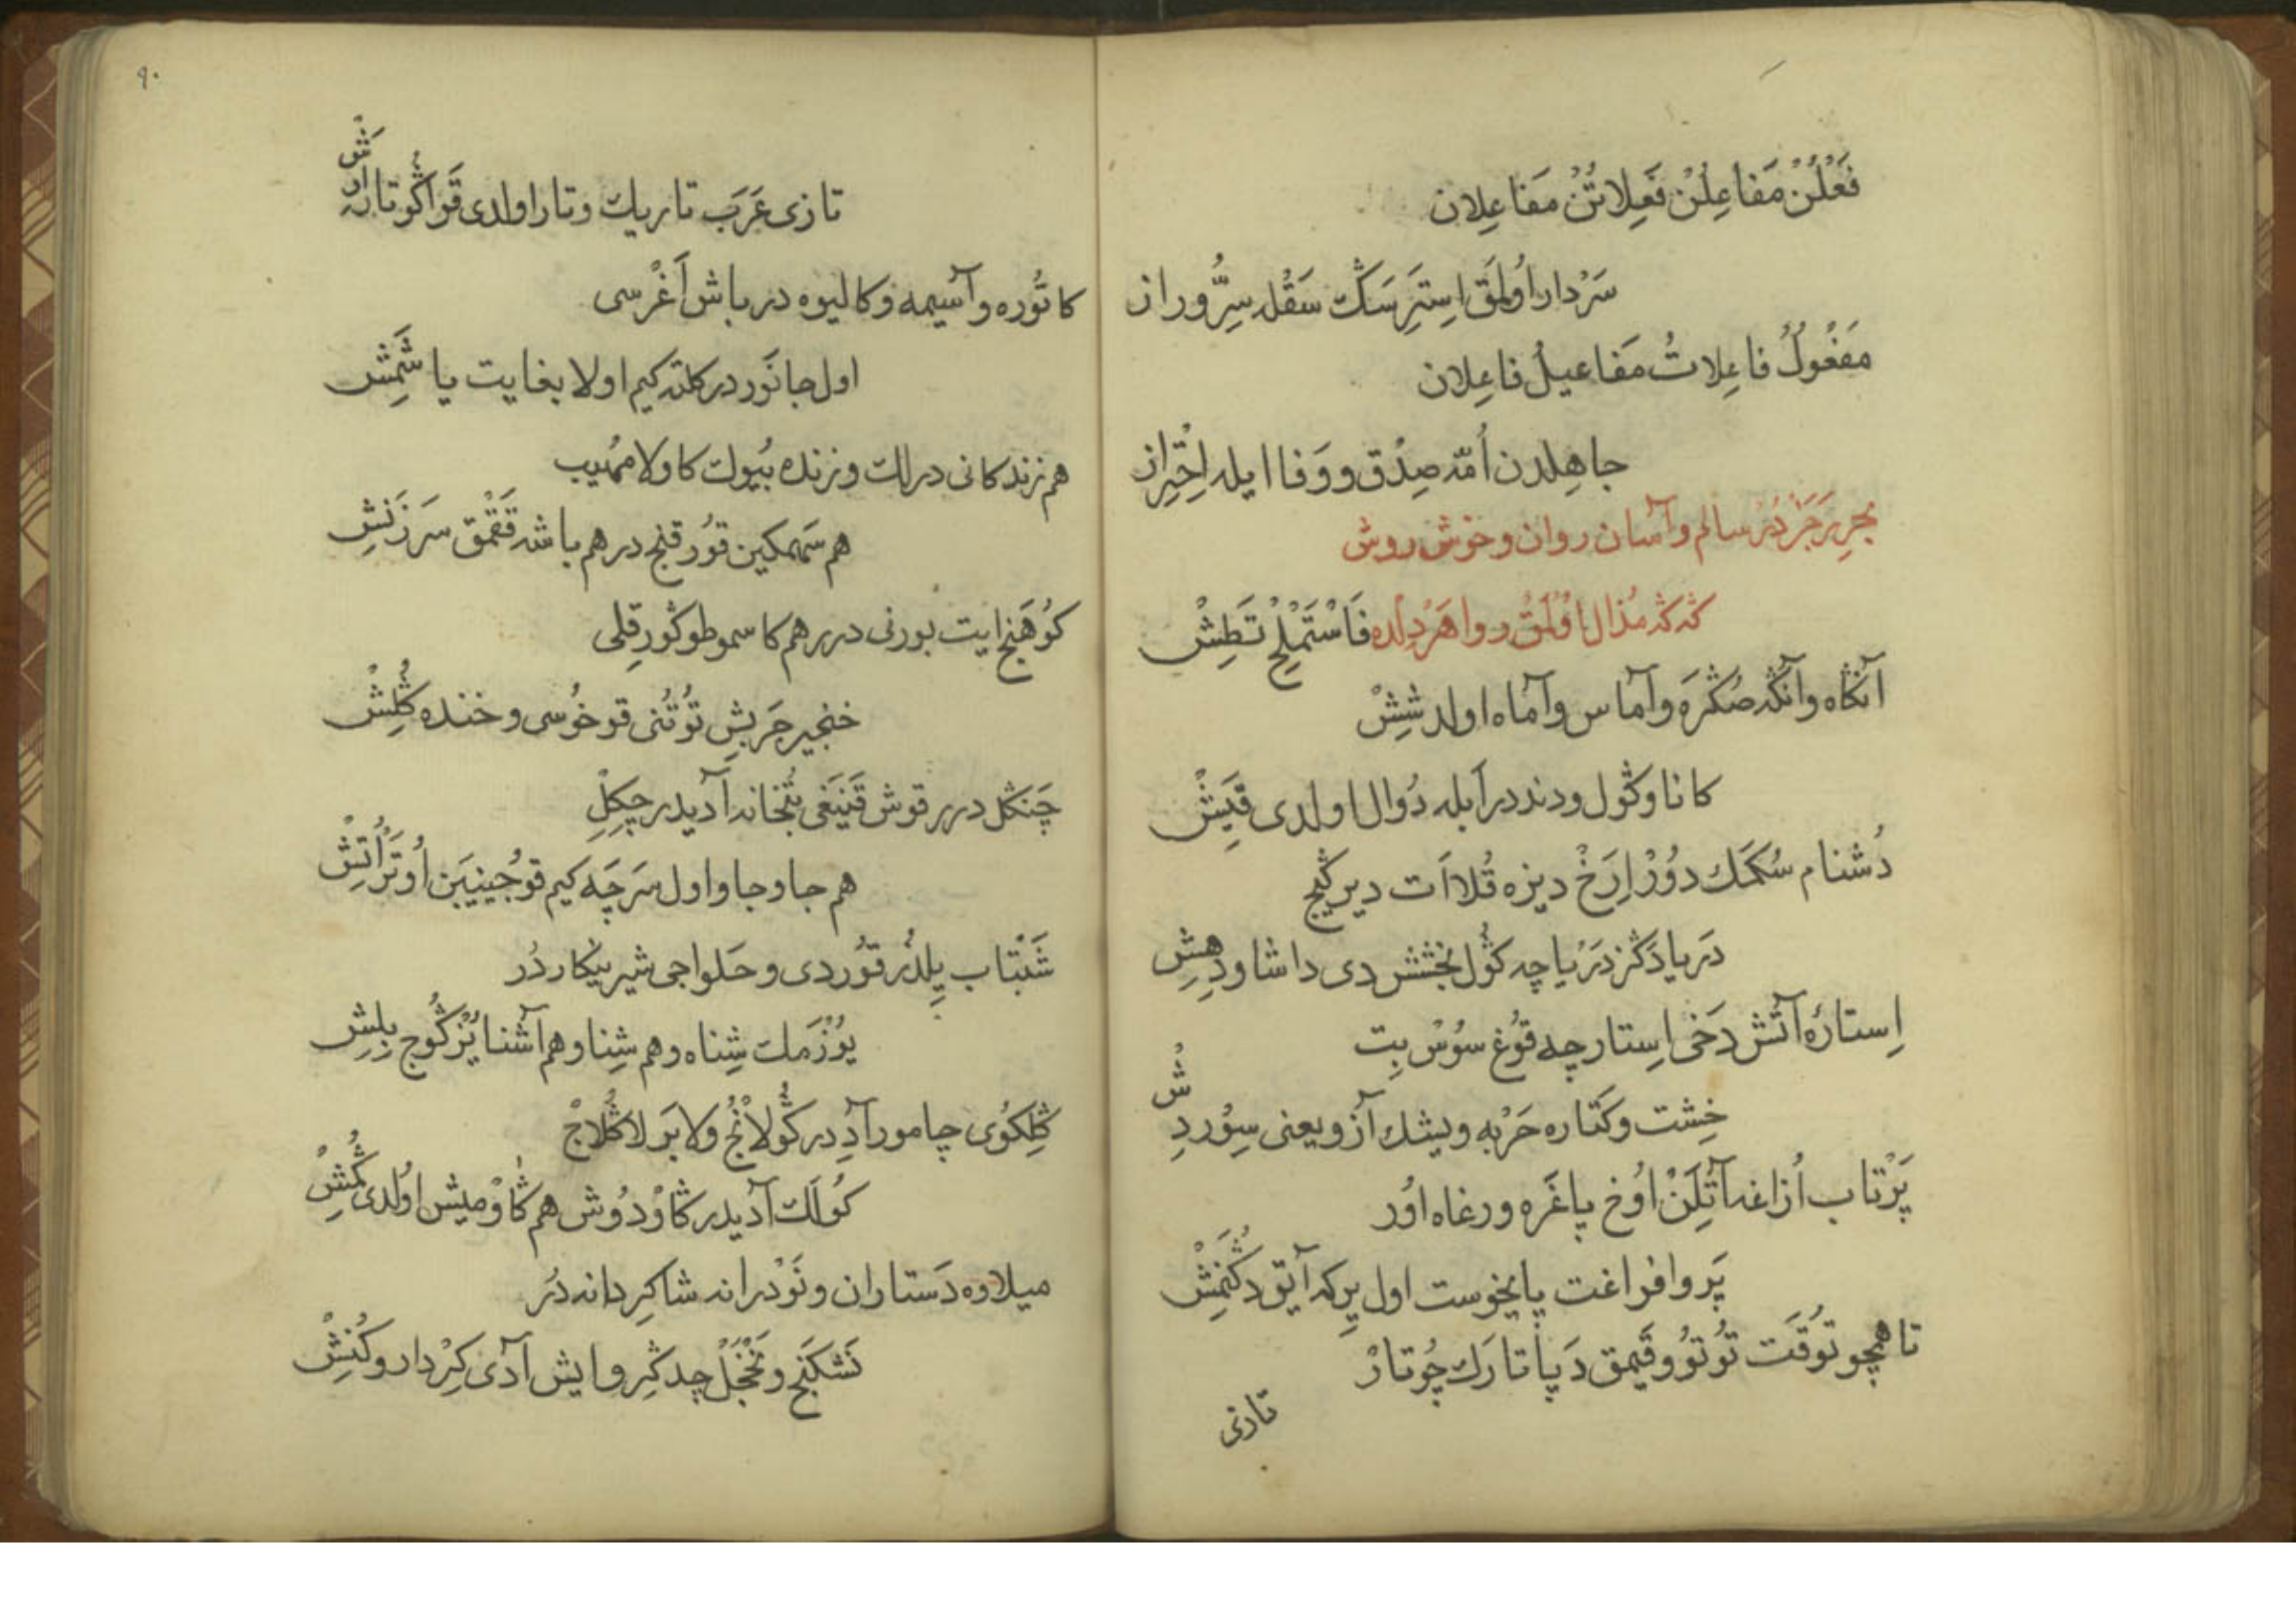 فَعْلُنْ مَفاعِلُنْ فَعِلاتُنْ مَفاعِلان
سَرْدار اُولمَق اِستَرسَڭ سَقْله سِرُّ وراز
مَفْعُولُ فاعِلاتُ مَفاعيلُ فاعِلان
جاهِلدن اُمّه صِدْق و وَفا ايله اِحْتِراز
بحرِ رَجَز دُر سالم و آسان روان و خوش روش
كه كه مُذال اوُلْمَق روا هَر دِلده فَاسْتَمْلِحْ تَطِشْ
آنكاه وآنكه صُكْرَه وآماس وآماه اولد شِشْ
كانا وكوُل ودند درابله دُوال اولدى قَيِشْ
دُشنام سُكمَك دوُزْ اِرَخْ ديزه قُلا اَت دير كيج
دَريا دَكز دَرْياچه كوُل بخشش دى داشا ودِهِشِ
اِستارهٔ آتش دَخى اِستارچه قوُغ سوُسْ بِت
خِشت وكَتاره حَرْبه ويشك آزو يعنى سِوُردِشْ
پَرْتاب اُزاغه آتِلَنْ اوُخ پاغَره ورغاه اوُر
پَروا فراغت پايخوست اول يِركه آيق دكُنَمِشْ
تا همچو توُقَت توُتوُ وقَيمق دَپا تارَك چوُتارْ
تازى
٩٠
تازى عَرَب تاريك وتار اولدى قَراكوُ تاره اَرِشْ
كاتوُره وآسيمه وكاليوه در باش اَغْرسى
اول جانَور در كلته كيم اولا بغايت ياشَمِش
هم زندكانى درلك وزنده بُيوك كاولا مهُيب
هم سَهمكين قوُرقنج در هم باشه قَقْمَق سَرزَنِش
كوُهَنج ايت بورنى در هم كاسمو طوكوُز قلِى
خنجير جَربِش توُتُنى قوخوُسى وخنده كُلِشْ
چَنكل درر قوش قَينَغى بُتخانه آديدر چكِلِ
هم جاوجاو اول سَرچَه كيم قوجُينيبَن اوُتَر اُتِشْ
شَبتاب يِلدُز قوُردى وحَلواجى شيرينكار دُر
يوُزْمَك شِناه وهم شِنا وهم آشنا يُزكوُج بِلِشِ
كِلكوُى چامور آدِدر كوُلانُجْ ولابَرلا كُلاجْ
كوُلَك آديدر كاوْدوُش هم كاوْميش اوُلدى كُمِشْ
ميلاوه دَستاران ونَوْدرانه شاكِردانه دُر
نَشكَنج ونَخْجَلْ چدكِر وايش آدى كِرْدار وكُنِشْ